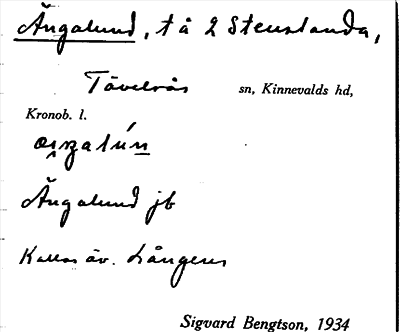 Ängalund, t å 2 Stenslanda,
Tävelsås sn, Kinnevalds hd,
Kronob. l.
Ängalund jb
Kallas äv.
Sigvard Bengtson, 1934